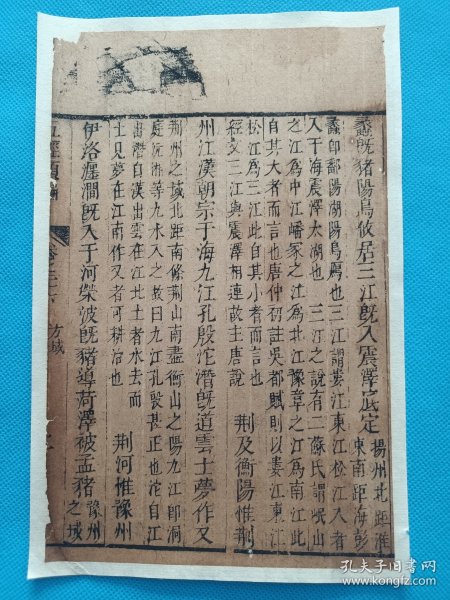 蠡既豬陽鳥攸居三江既入震澤底定 揚州北距淮
東南距海彭
蠡卽鄱陽湖陽鳥鴈也三江謂婁江東江松江入者
入于海震澤太湖也 三江之說有二蘇氏謂岷山
之江爲中江嶓冢之江爲北江豫章之江爲南江此
自其大者而言也唐仲初註吳都賦則以婁江東江
松江爲三江此自其小者而言也
經文三江與震澤相連故主唐說
荆及衡陽惟荆
州江漢朝宗于海九江孔殷沱潛既道雲土夢作乂
荆州之域北距南條荆山南盡衡山之陽九江卽洞
庭沅湘等九水入之故曰九江孔殷甚正也沱自江
出潛自漢出雲在江北土者水去而
土見夢在江南作乂者可耕治也
荆河惟豫州
伊洛瀍澗既入于河滎波既豬導菏澤被孟豬 豫州
之域
五經
方域
孔夫子旧书网